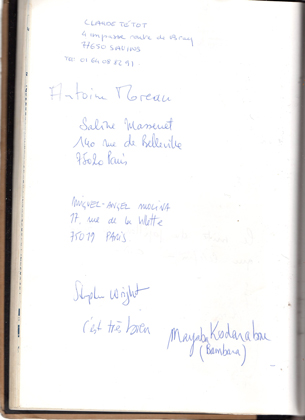 CLAUDE TÉTOT
4 impasse route de
77650 SAVINS
Tel 01 64 08 82 91.
Antoine Moreau
Sabine Massenet
140 rue de Belleville
75020 Paris
MIGUEL-ANGEL MOLINA
17. rue de la Villette
75019 PARIS
Stephen Wright
c'est très bien
(Bambara)